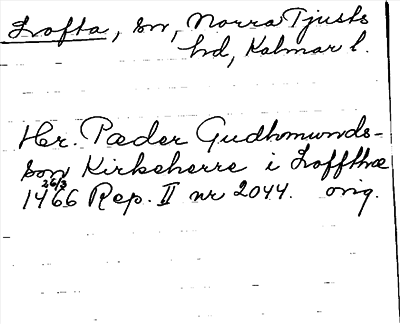 Lofta, sn, Norra Tjusts
hd, Kalmar l.
Hr. Pæder Gudhmunds-
son Kirkeherre i Loffthæ
26/3
1466 Rep. II nr 2044. orig.